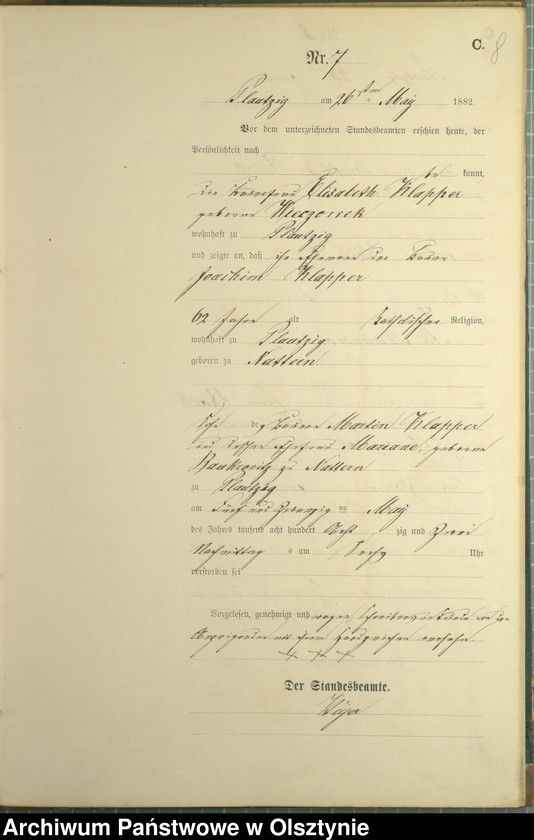 C.
8
Nr. 7
Plautzig am 26sten May 1882.
Vor dem unterzeichneten Standesbeamten erschien heute, der
Persönlichkeit nach
be kannt,
die Bauersfrau Elisabeth Klapper
geborne Wieczorrek
wohnhaft zu Plautzig
und zeigte an, daß ihr Ehemann der Bauer
Joachim Klapper
62 Jahre alt katholischer Religion,
wohnhaft zu Plautzig
geboren zu Nattern
Sohn des Bauer Martin Klapper
und dessen Ehefrau Mariane, geborne
zu Nattern
zu Plautzig
am Fünf und Zwanzig ten May
des Jahres tausend acht hundert Acht zig und Zwei
Nachmittag s um Sechs Uhr
verstorben sei
Vorgelesen, genehmigt und wegen
mit ihrem Handzeichen versehen
+ + +
Der Standesbeamte.
Archiwum Państwowe w Olsztynie